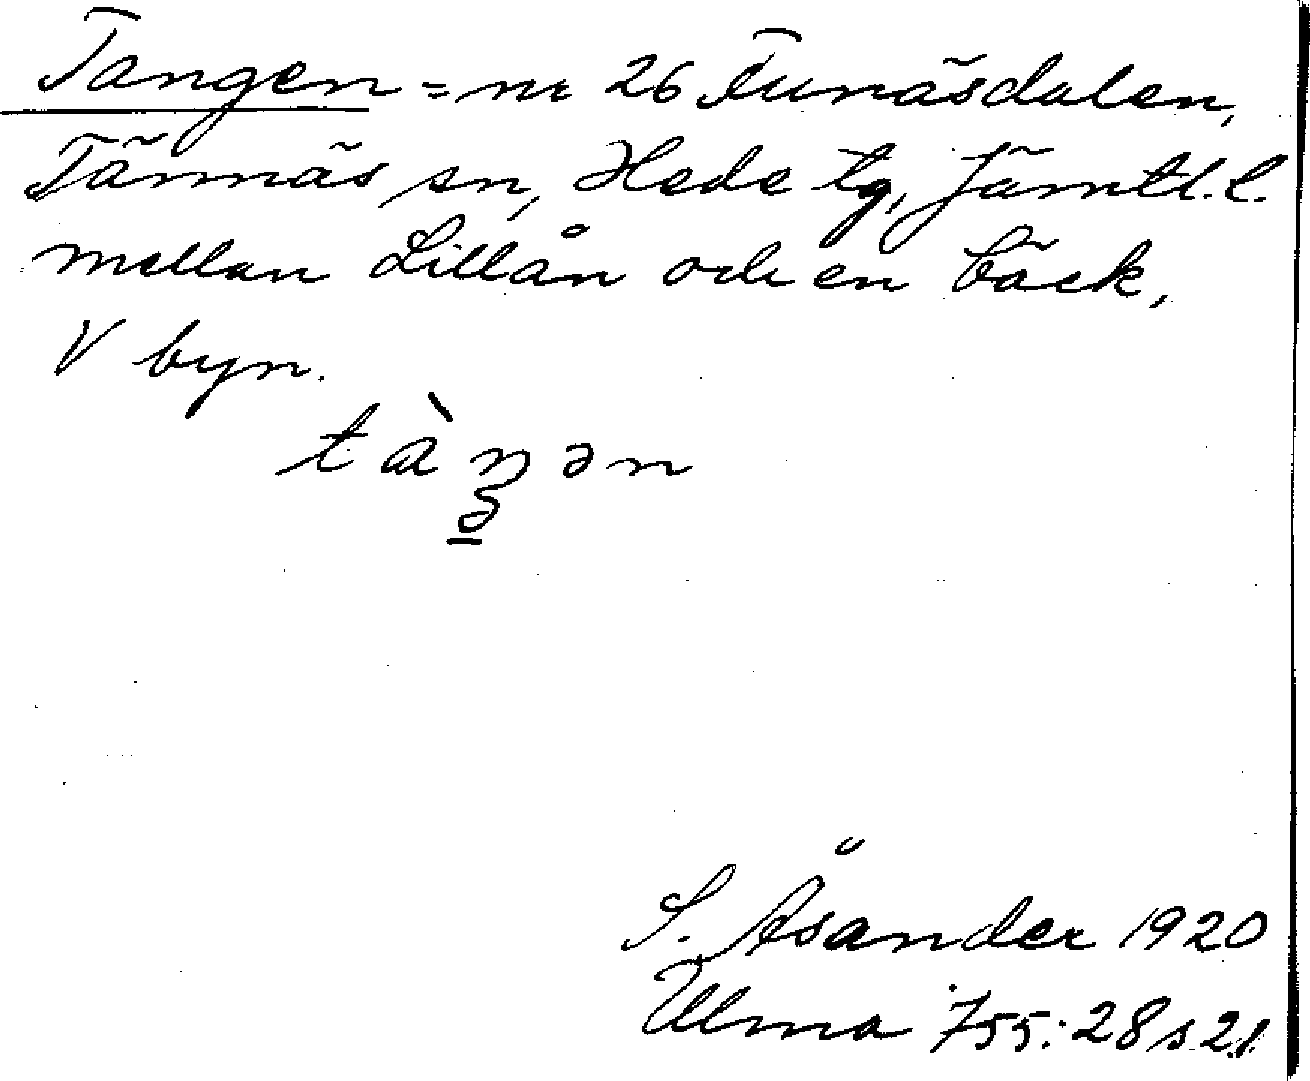 Tangen = nr 26 Funäsdalen,
Tännäs sn, Hede tg, Jämtl. l.
mellan Lillån och en bäck,
V byn.
tàŋən
S. Åsander 1920
Ulma 755:28 s 21